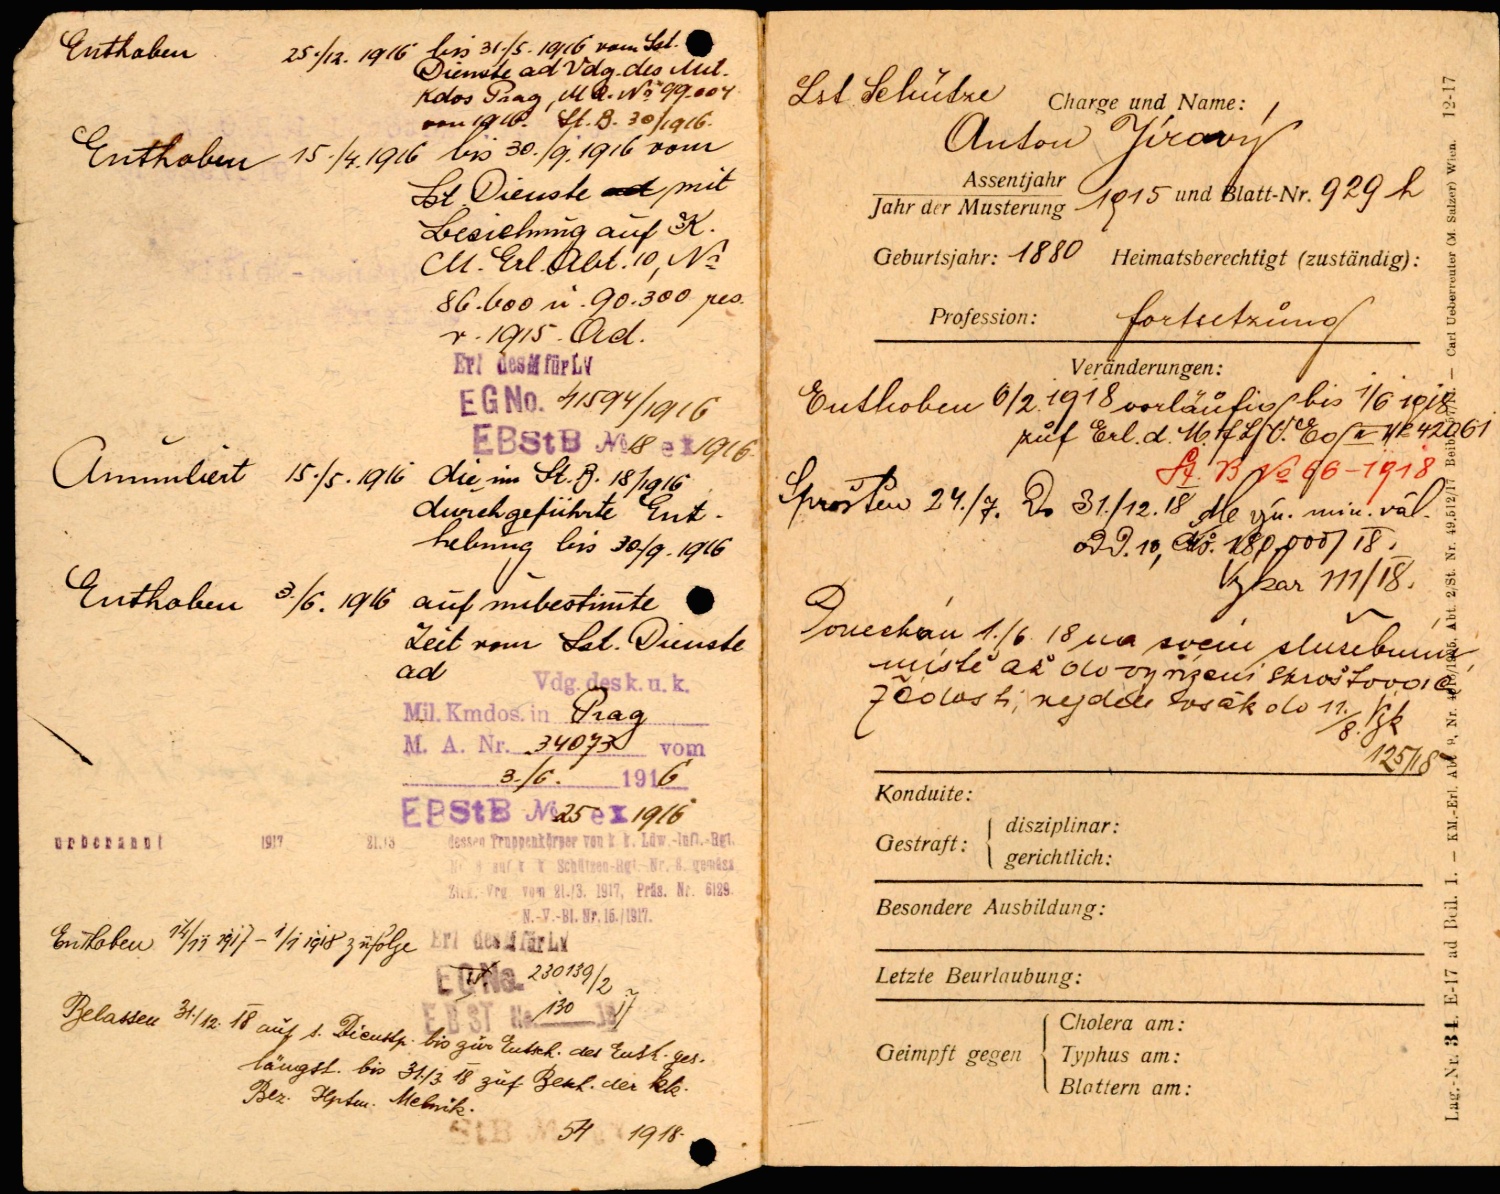 Enthoben 25./12. 1916 bis 31./5. 1916 vom Lst.
Dienste ad Vdg. des Mil.
Kdos Prag, M.A. No 99.004
von 1916. St. B. 30/1916.
Enthoben 15./4. 1916 bis 30./9. 1916 vom
Lst. Dienste ad mit
Beziehung auf K.
M. Erl. Abt. 10, No
86.600 u. 90.300 res.
v. 1915. Ad.
Erl des M für LV
EGNo. 41594/1916
EBStB No 18 ex 1916
Annuliert 15./5. 1916 die im St. B. 18/1916
durchgeführte Ent-
hebung bis 30./9. 1916
Enthoben 3./6. 1916 auf unbestimte
Zeit vom Lst. Dienste
ad
Vdg. des k. u. k.
Mil. Kmdos. in Prag
M. A. Nr. 34073 vom
3./6. 1916
EBStB No 25 ex 1916
1917 21./3 dessen Truppenkörper von k. k. Ldw.-Inft.-Rgt.
Nr. 8 auf k. k. Schützen-Rgt.-Nr. 8. gemäss
Zirk.-Vrg. vom 21./3. 1917, Präs. Nr. 6129.
N.-V.-Bl. Nr. 15./1917.
Enthoben 14/11 1917 – 1/1 1918 zufolge Erl des M für LV
EGNo. 230139/2
EBST No 130 17
Belassen 31./12. 18 auf s. Dienstp. bis zur Entsch. des Enth. ges.
längst. bis 31./3. 18 zuf. der kk.
Bez. Hptm. Melnik.
StB 54 1918.
Lst Schütze
Charge und Name:
Anton Jírový
Assentjahr
Jahr der Musterung 1915 und Blatt-Nr. 929 h
Geburtsjahr: 1880 Heimatsberechtigt (zuständig):
Profession: fortsetzung
Veränderungen:
Enthoben 6/2 1918 vorläufig bis 1/6 1918
zuf Erl. d. M. f. L. V. No 42061
St. B No 66–1918
Sproštěn 24./7. Do 31./12. 18 dle vyn. min. vál.
odd. 10, čís. 180.000/18.
111/18.
Ponechán 1./6. 18 na svém služebním
místě až do vyřízení sprošťovací
žádosti, nejdéle však do 11./8.
125/18
Konduite:
Gestraft: disziplinar:
gerichtlich:
Besondere Ausbildung:
Letzte Beurlaubung:
Geimpft gegen Cholera am:
Typhus am:
Blattern am:
Lag.-Nr. 34. E-17 ad Beil. 1. — KM.-Erl. Abt. 2/St. Nr. 49.512/17 — Carl Ueberreuter (M. Salzer) Wien. 12-17